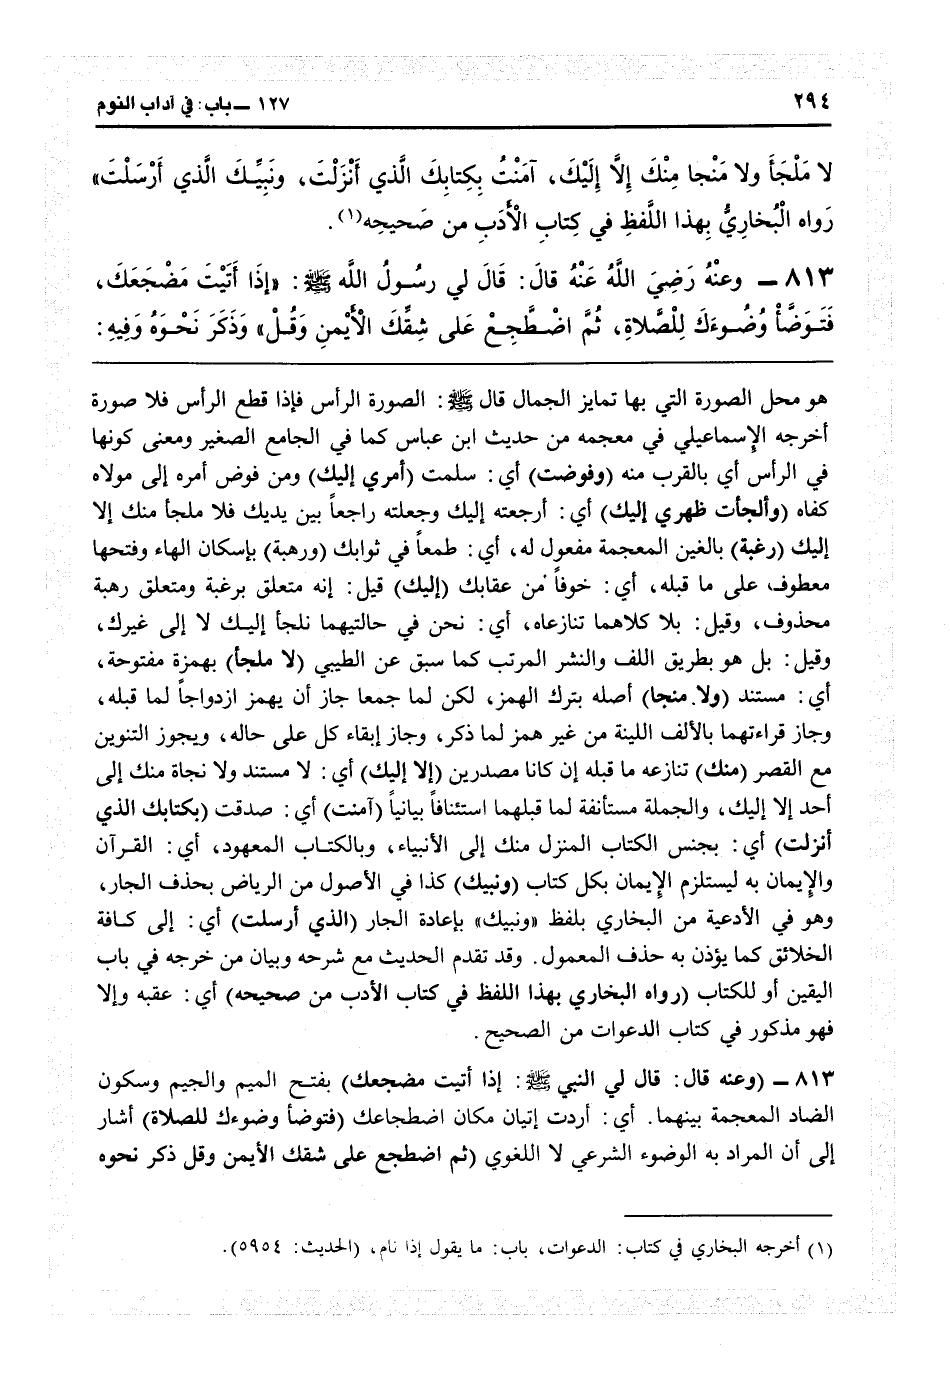 ٢٩٤
١٢٧ ــ باب: في آداب النوم
لا مَلْجَأَ ولا مَنْجا مِنْكَ إِلَّا إِلَيْكَ، آمَنْتُ بِكِتابِكَ الَّذي أَنْزَلْتَ، ونَبِيِّـكَ الَّذي أَرْسَلْتَ»
رَواه الْبُخارِيُّ بِهذا اللَّفظِ في كِتابِ الْأَدَبِ من صَحيحِه(١).
٨١٣ ــ وعنْهُ رَضِيَ اللَّهُ عَنْهُ قالَ: قَالَ لي رسُـولُ اللَّه ﷺ: «إِذَا أَتَيْتَ مَضْجَعَكَ،
فَتَـوَضَّأْ وُضُـوءَكَ لِلصَّلاةِ، ثُمَّ اضْطَّجِعْ عَلى شِقِّكَ الْأَيْمنِ وَقُـلْ» وَذَكَرَ نَحْـوَهُ وَفِيهِ:
هو محل الصورة التي بها تمايز الجمال قال ﷺ: الصورة الرأس فإذا قطع الرأس فلا صورة
أخرجه الإسماعيلي في معجمه من حديث ابن عباس كما في الجامع الصغير ومعنى كونها
في الرأس أي بالقرب منه (وفوضت) أي: سلمت (أمري إليك) ومن فوض أمره إلى مولاه
كفاه (وألجأت ظهري إليك) أي: أرجعته إليك وجعلته راجعاً بين يديك فلا ملجأ منك إلا
إليك (رغبة) بالغين المعجمة مفعول له، أي: طمعاً في ثوابك (ورهبة) بإسكان الهاء وفتحها
معطوف على ما قبله، أي: خوفاً من عقابك (إليك) قيل: إنه متعلق برغبة ومتعلق رهبة
محذوف، وقيل: بلا كلاهما تنازعاه، أي: نحن في حالتيهما نلجأ إليـك لا إلى غيرك،
وقيل: بل هو بطريق اللف والنشر المرتب كما سبق عن الطيبي (لا ملجأ) بهمزة مفتوحة،
أي: مستند (ولا منجا) أصله بترك الهمز، لكن لما جمعا جاز أن يهمز ازدواجاً لما قبله،
وجاز قراءتهما بالألف اللينة من غير همز لما ذكر، وجاز إبقاء كل على حاله، ويجوز التنوين
مع القصر (منك) تنازعه ما قبله إن كانا مصدرين (إلا إليك) أي: لا مستند ولا نجاة منك إلى
أحد إلا إليك، والجملة مستأنفة لما قبلهما استئنافاً بيانياً (آمنت) أي: صدقت (بكتابك الذي
أنزلت) أي: بجنس الكتاب المنزل منك إلى الأنبياء، وبالكتـاب المعهود، أي: القـرآن
والإيمان به ليستلزم الإيمان بكل كتاب (ونبيك) كذا في الأصول من الرياض بحذف الجار،
وهو في الأدعية من البخاري بلفظ «ونبيك» بإعادة الجار (الذي أرسلت) أي: إلى كـافة
الخلائق كما يؤذن به حذف المعمول. وقد تقدم الحديث مع شرحه وبيان من خرجه في باب
اليقين أو للكتاب (رواه البخاري بهذا اللفظ في كتاب الأدب من صحيحه) أي: عقبه وإلا
فهو مذكور في كتاب الدعوات من الصحيح.
٨١٣ ــ (وعنه قال: قال لي النبي ﷺ: إذا أتيت مضجعك) بفتـح الميم والجيم وسكون
الضاد المعجمة بينهما. أي: أردت إتيان مكان اضطجاعك (فتوضأ وضوءك للصلاة) أشار
إلى أن المراد به الوضوء الشرعي لا اللغوي (ثم اضطجع على شقك الأيمن وقل ذكر نحوه
(١) أخرجه البخاري في كتاب: الدعوات، باب: ما يقول إذا نام، (الحديث: ٥٩٥٤).